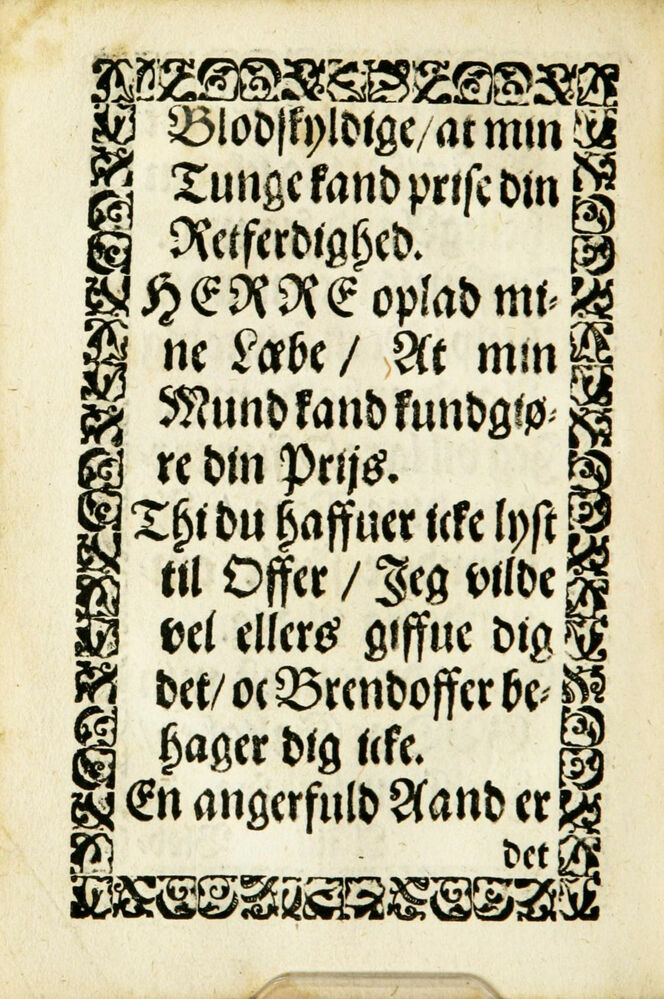 Blodſkyldige/at min
Tunge kand priſe din
Retferdighed.
HERRE oplad mi⸗
ne Læbe / At min
Mund kand kundgiø⸗
re din Prijs.
Thi du haffuer icke lyſt
til Offer / Jeg vilde
vel ellers giffue dig
det/ oc Brendoffer be⸗
hager dig icke.
En angerfuld Aand er
det